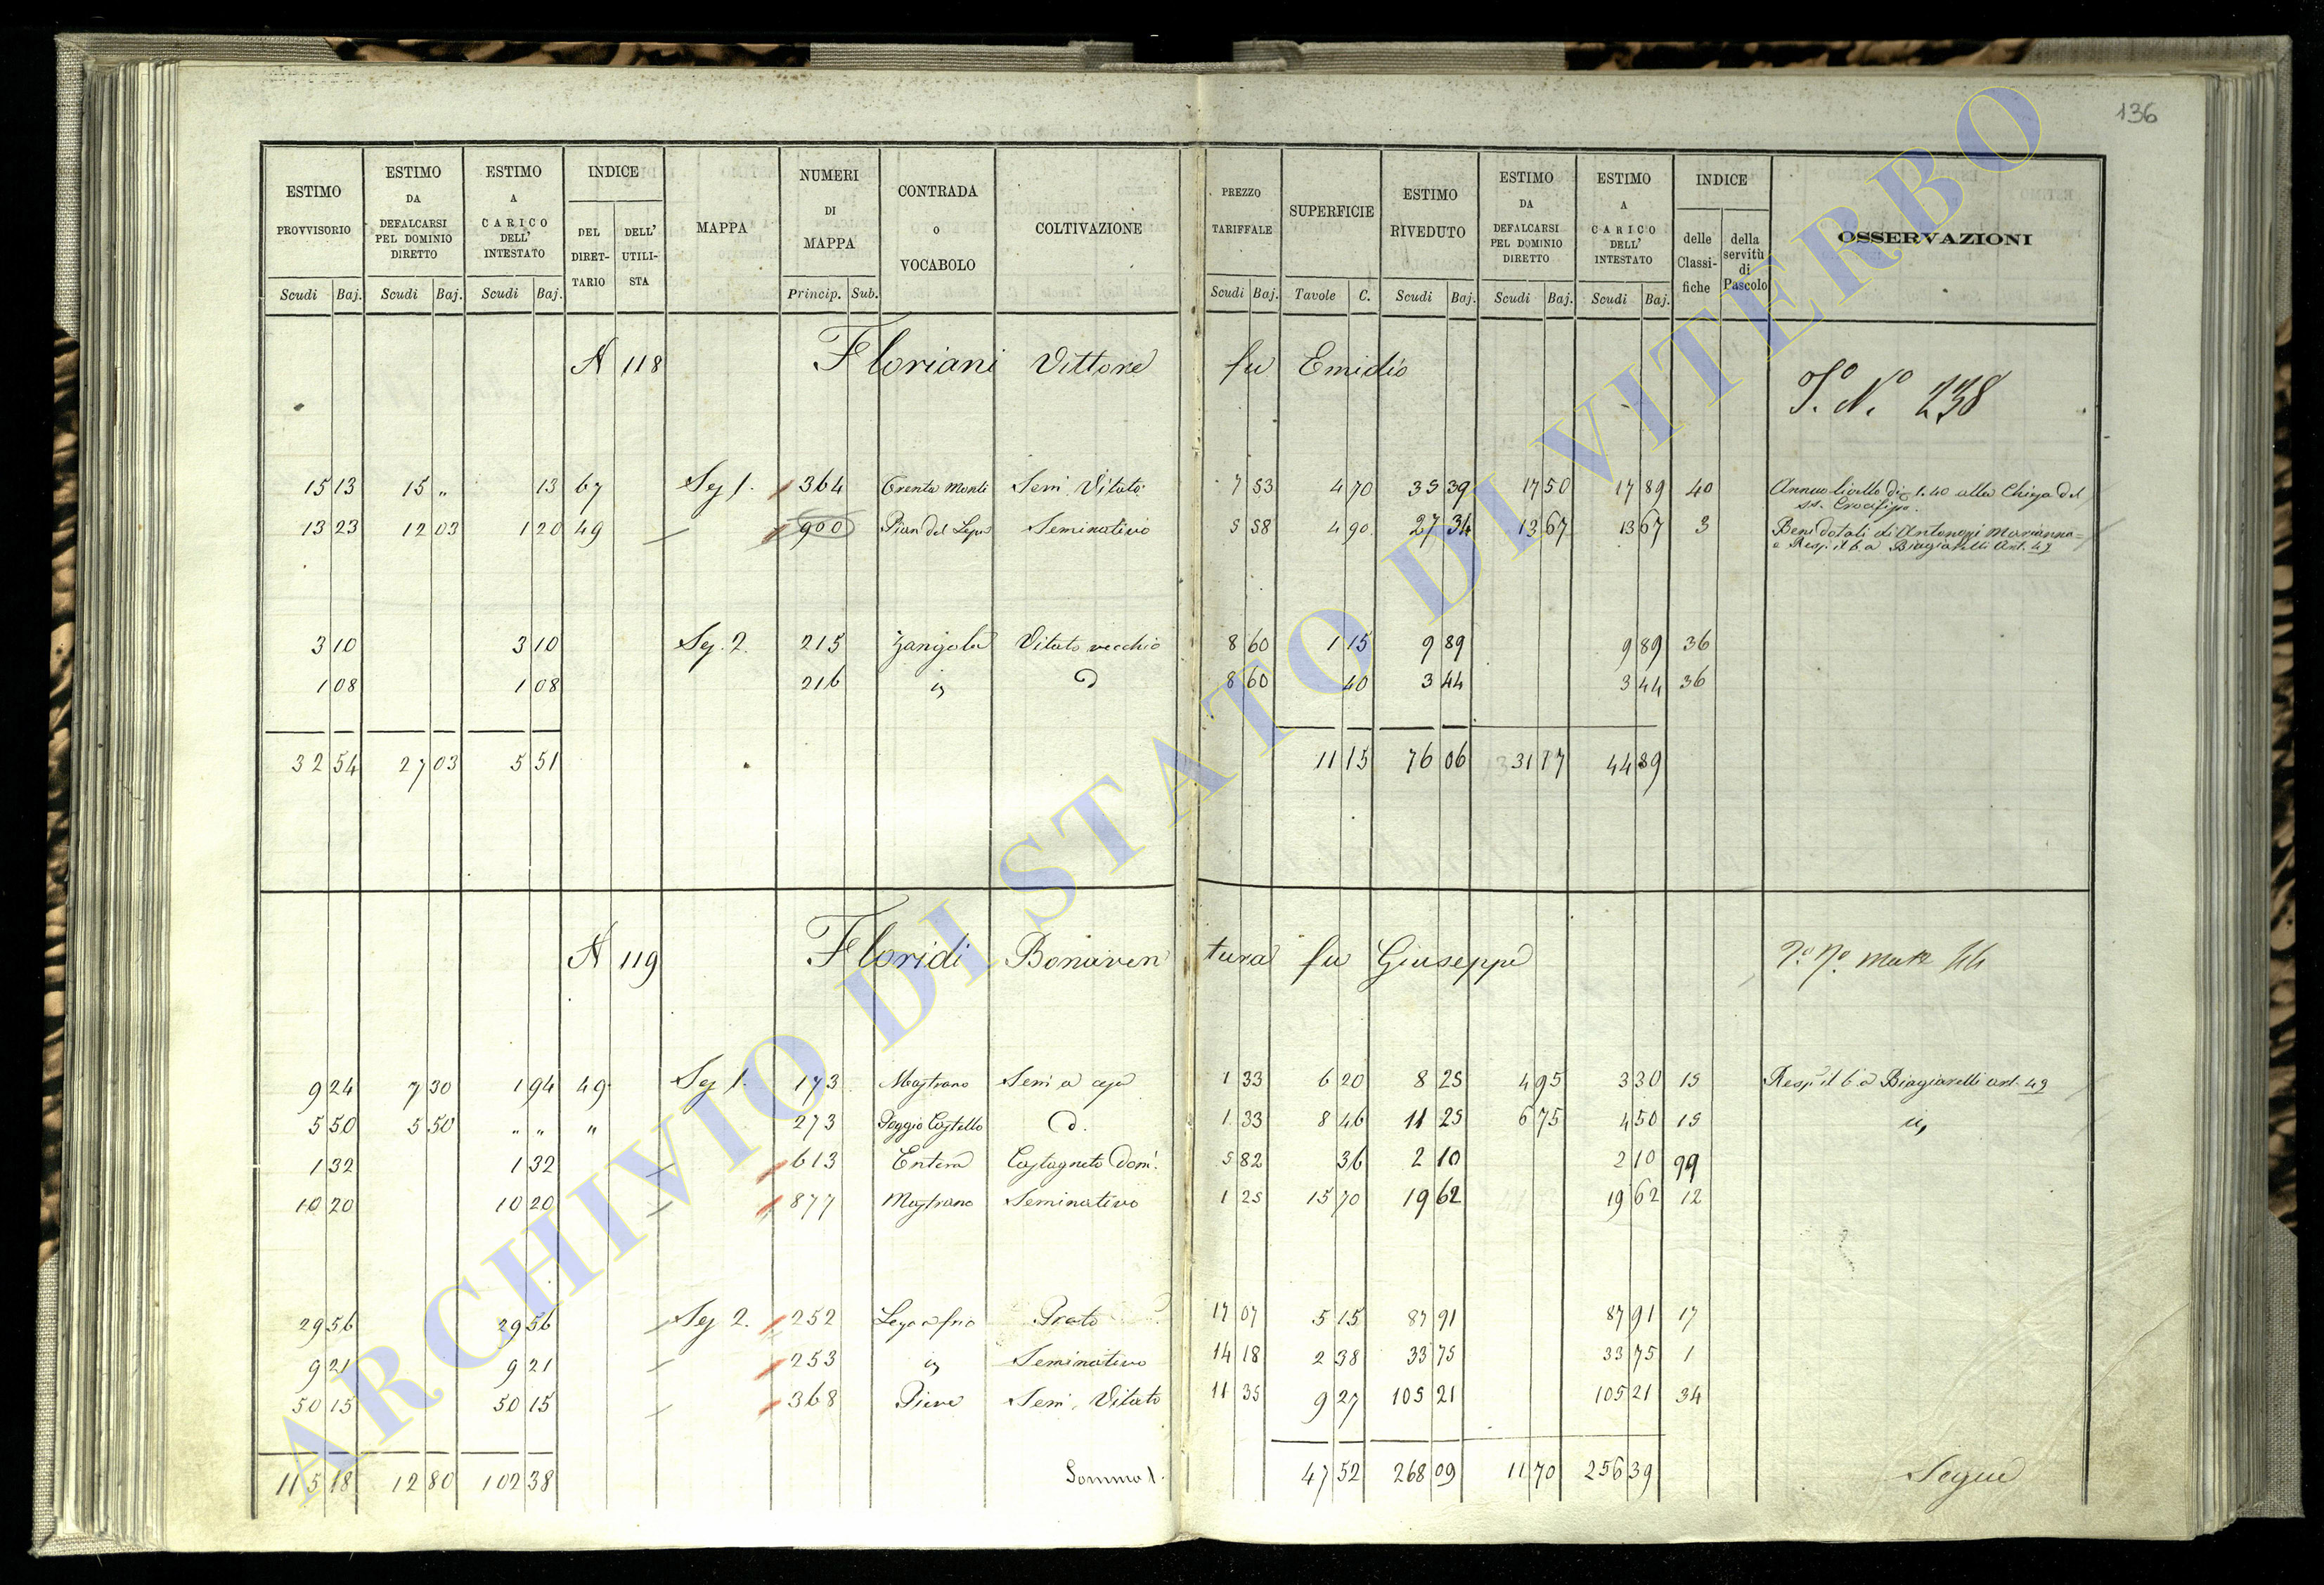 136
ESTIMO PROVVISORIO Scudi Baj.
ESTIMO DA DEFALCARSI PEL DOMINIO DIRETTO Scudi Baj.
ESTIMO A CARICO DELL' INTESTATO Scudi Baj.
INDICE DEL DIRET-TARIO DELL' UTILI-STA
MAPPA
NUMERI DI MAPPA Princip. Sub.
CONTRADA o VOCABOLO
COLTIVAZIONE
PREZZO TARIFFALE Scudi Baj.
SUPERFICIE Tavole C.
ESTIMO RIVEDUTO Scudi Baj.
ESTIMO DA DEFALCARSI PEL DOMINIO DIRETTO Scudi Baj.
ESTIMO A CARICO DELL' INTESTATO Scudi Baj.
INDICE delle Classi-fiche della servitù di Pascolo
OSSERVAZIONI
N 118 Floriani Vittore fu Emidio
N.° 238
15 13 15 „ 13 67 Sez 1. 364 Trenta Monti Sem. Vitato 7 53 4 70 35 39 17 50 17 89 40 Annuo livello di 1.40 alla Chiesa del SS. Crocifisso.
13 23 12 03 1 20 49 900 Pian del Lepre Seminativo 5 58 4 90 27 34 13 67 13 67 3 Beni dotali di Antonozzi Marianna
e Resp. il 6.a Biagiarelli Art. 49
3 10 3 10 Sez. 2. 215 Zangola Vitato vecchio 8 60 1 15 9 89 9 89 36
1 08 1 08 216 id. d 8 60 40 3 44 3 44 36
32 54 27 03 5 51 11 15 76 06 31 17 44 89
N 119 Floridi Bonaventura fu Giuseppe
44
9 24 7 30 1 94 49 Sez 1. 173 Mastrano 1 33 6 20 8 25 4 95 3 30 15 Resp. il 6.a Biagiarelli art. 49
5 50 5 50 „ „ „ 273 Poggio Castello d. 1 33 8 46 11 25 6 75 4 50 15 id.
1 32 1 32 613 Castagneto Dom. 5 82 36 2 10 2 10 99
10 20 10 20 877 Mastrano Seminativo 1 25 15 70 19 62 19 62 12
29 56 29 56 Sez 2. 252 Prato 17 07 5 15 87 91 87 91 17
9 21 9 21 253 id. Seminativo 14 18 2 38 33 75 33 75 1
50 15 50 15 368 Pieve Sem. Vitato 11 35 9 27 105 21 105 21 34
115 18 12 80 102 38 Somma 47 52 268 09 11 70 256 39 Segue
ARCHIVIO DI STATO DI VITERBO